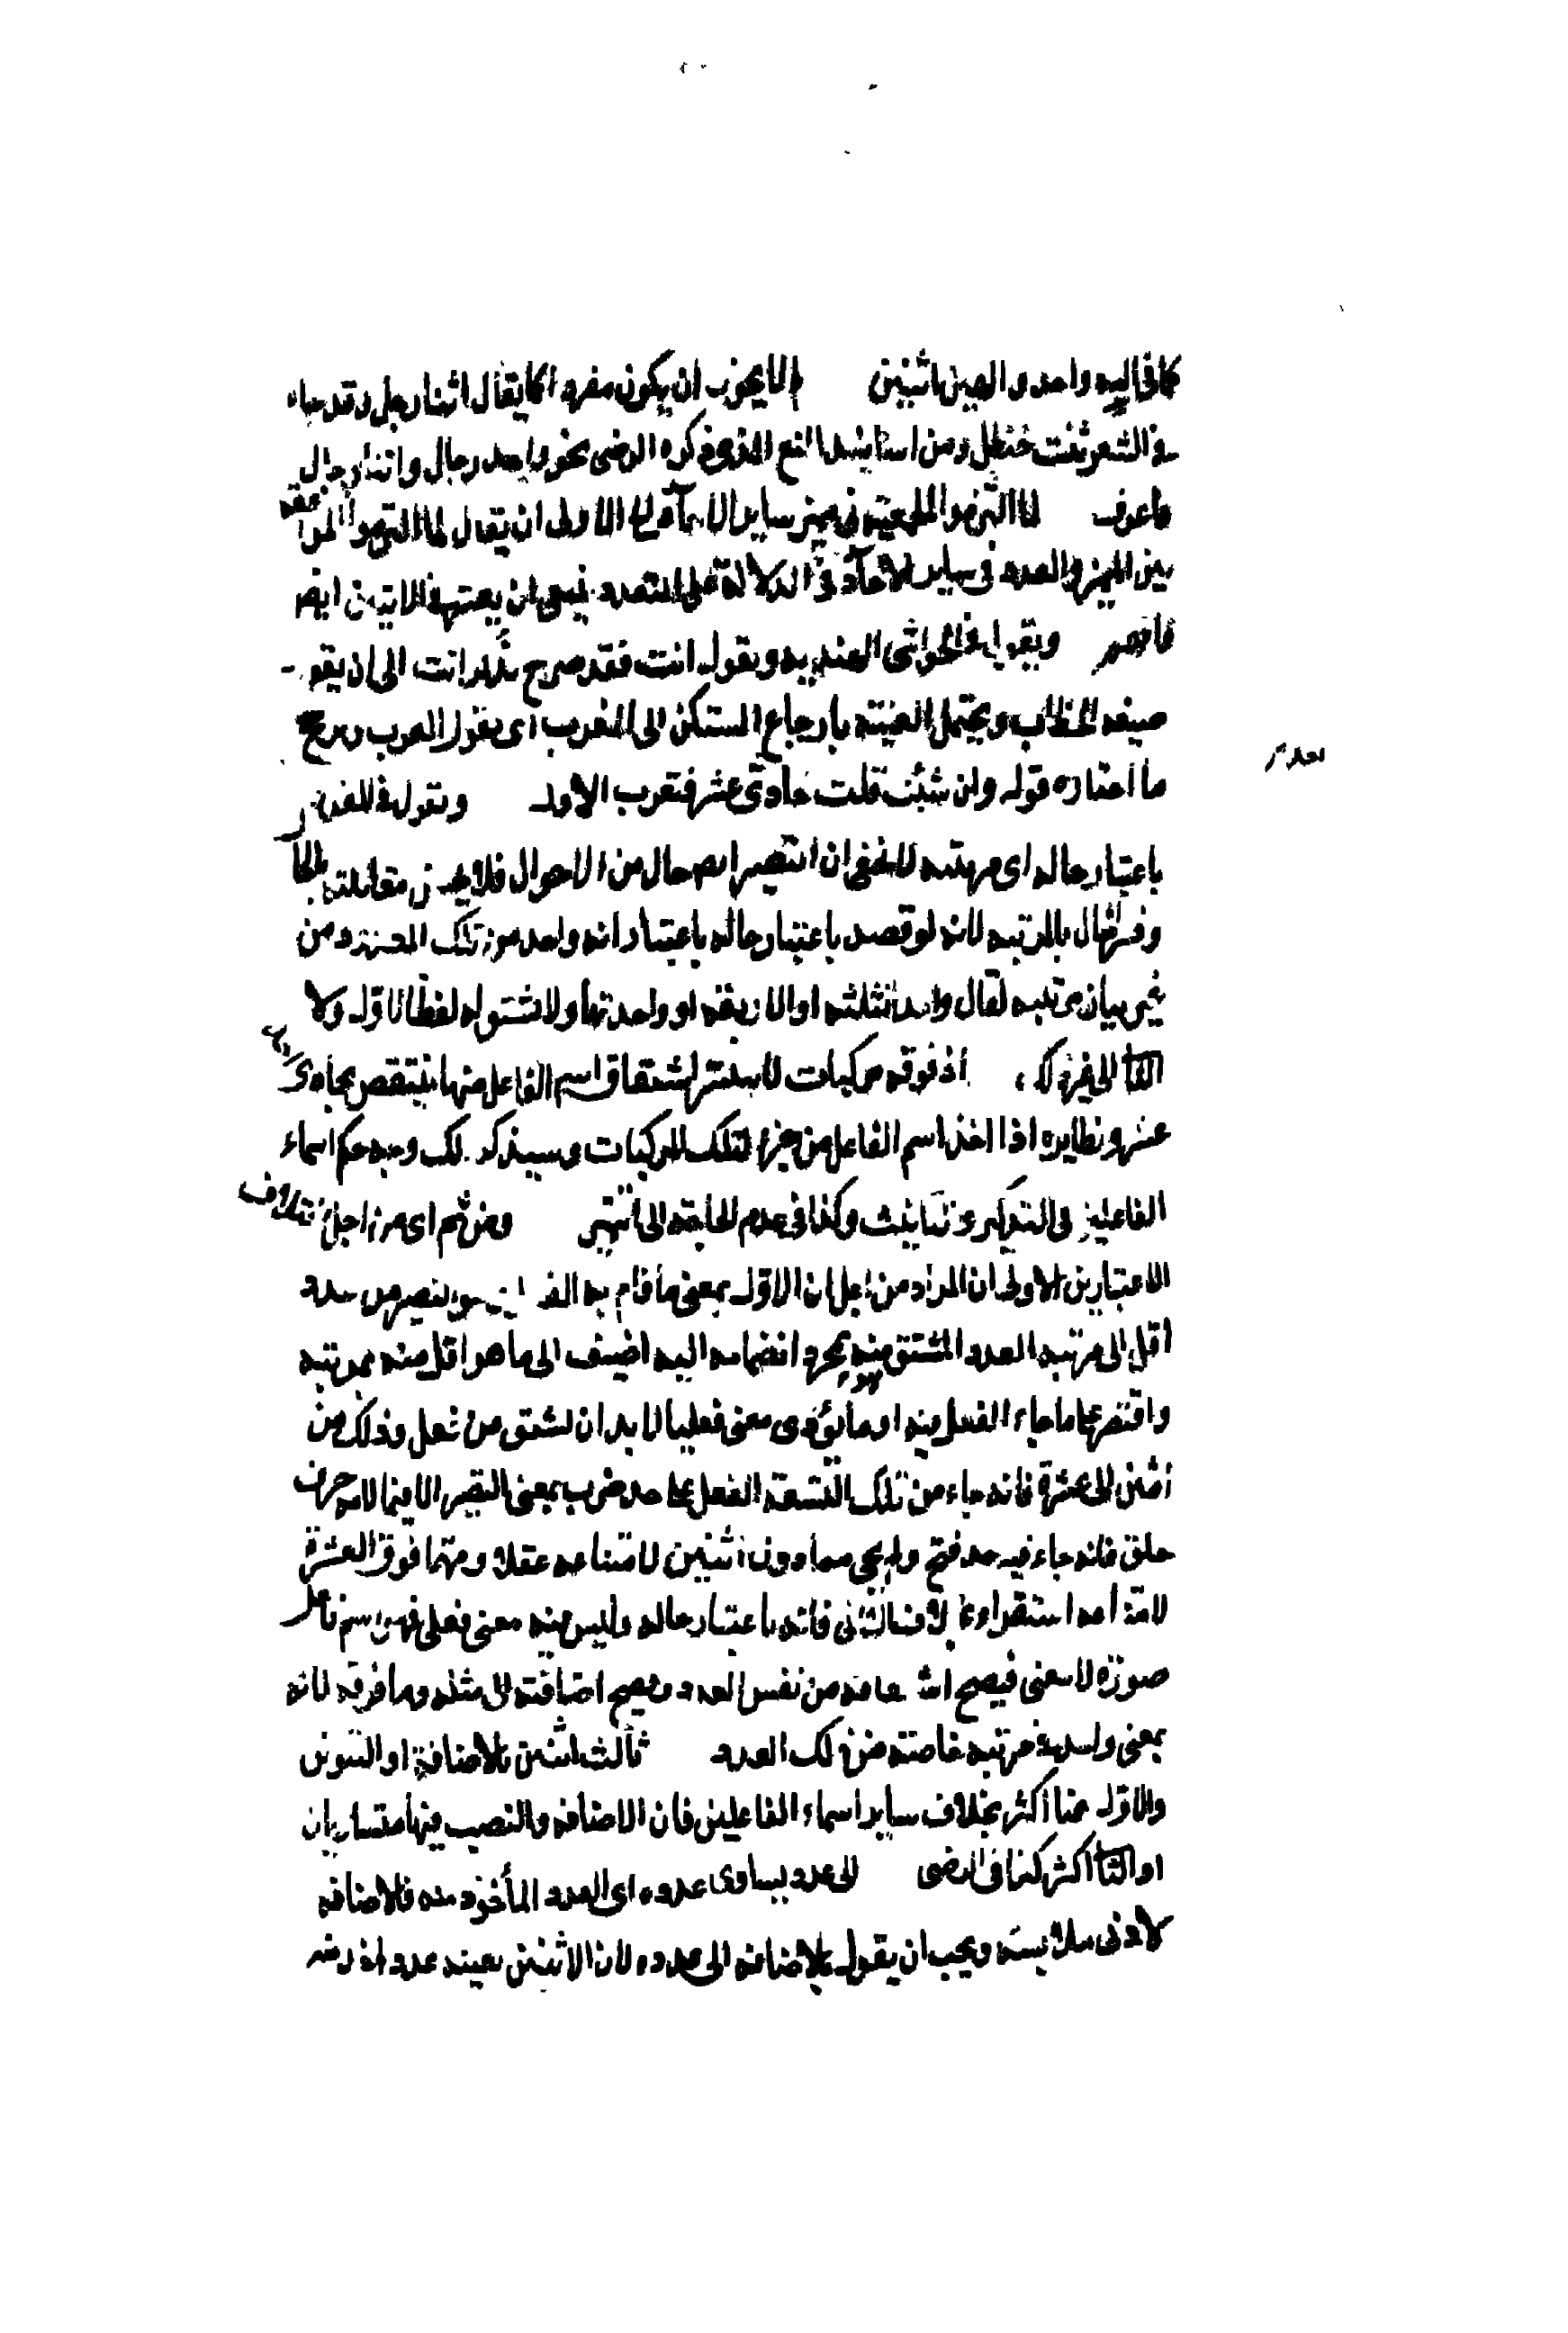 كما في اله واحد و الهين اثنين والا يجوز ان يكون مفردا كما يقال اثنا رجل وقد جاء
في الشعر ثنتا حنظل ومن الذي ذكره الرضى نحو واحد رجال واثنا رجال
فاعرف لما التزموا الجمعية في مميز ساير الآحاد الاولى ان يقال لما التزموا الموافقة
بين المميز والعدد في ساير الآحاد في الدلالة على التعدد ينبغي ان يعتبر في الاثنين ايضا
ويقول في الحواشي الهندية ويقول انت فقد صرح بذكر انت الى ان يقول
صيغة الخطاب ويحتمل الغيبة بارجاع المستكن الى المعرب اي يقول المعرب ويرجح
ما اختاره قوله وان شئت قلت حادي عشر فتعرب الاول وتقول في المفرد
باعتبار حاله اي مرتبته لا يخفى ان التصيير ايضا حال من الاحوال فلا يحسن مقابلته بالحال
وفسر الحال بالمرتبة لانه لو قصد باعتبار حاله باعتبار انه واحد من تلك من
غير بيان مرتبته لقال واحد الثلثة او الاربعة او واحدتها ولا لفظ الاول ولا
الثاني الى غير ذلك اذ فوقه مركبات لا يتيسر اشتقاق اسم الفاعل منها ينتقض بحادي
عشر ونظايره اذا اخذ اسم الفاعل من جزء لتلك المركبات وسيذكر لك وجه حكم اسماء
الفاعلين في التذكير والتأنيث وكذا في عدم الحاجة الى التمييز ومن ثم اي من اجل اختلاف
الاعتبارين الاولى ان المراد من اجل ان الاول بمعنى ما قام به الفعل
اقل الى مرتبة العدد المشتق منه بمجرد انضمامه اليه اضيف الى ما هو اقل منه بمرتبة
واقتصر على ما جاء الفعل منه او ما يؤدى معنى فعليا لا بد ان يشتق من فعل وذلك من
اثنين الى عشرة فانه جاء من تلك التسعة الفعل على حد ضرب بمعنى التصيير الا فيما لامه حرف
حلق فانه جاء فيه حد فتح ولم يجئ مما دون اثنين لامتناعه عقلا ومما فوق العشرة
لامتناعه استقراء بخلاف الثاني فانه باعتبار حاله وليس فيه معنى فعلى فهو اسم فاعل
صورة لا معنى فيصح اشتقاقه من نفس العدد ويصح اضافته الى مثله وما فوقه لانه
بمعنى واحد في مرتبة خاصة من ذلك العدد ثالث اثنين بالاضافة او التنوين
والاول هنا اكثر بخلاف ساير اسماء الفاعلين فان الاضافة والنصب فيها متساويان
او الثاني اكثر كذا في الرضى الى عدد يساوى عدده اي العدد المأخوذ منه فالاضافة
لادنى ملابسة ويجب ان يقول بالاضافة الى عدده لان الاثنين بعينه عدد